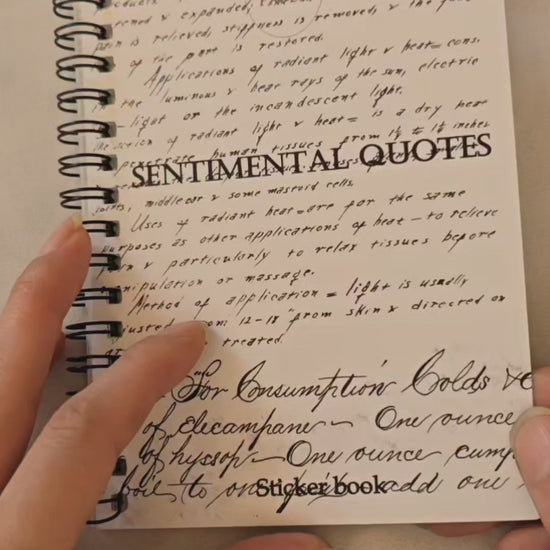 & expanded,
is relieved, stiffness is removed, & the
of the part is restored.
Applications of radiant light & heat = cons.
the luminous & heat rays of the sun, electric
light or the incandescent light.
of radiant light & heat = is a dry heat
human tissues from 1/2
SENTIMENTAL QUOTES
middle ear & some mastoid cells.
Uses of radiant heat = are for the same
purposes as other applications of heat - to relieve
pain & particularly to relax tissues before
manipulation or massage.
Method of application = light is usually
12-18" from skin & directed on
treated.
For Consumption Colds
of elecampane - One ounce
of hyssop - One ounce
boil to add one
Sticker book